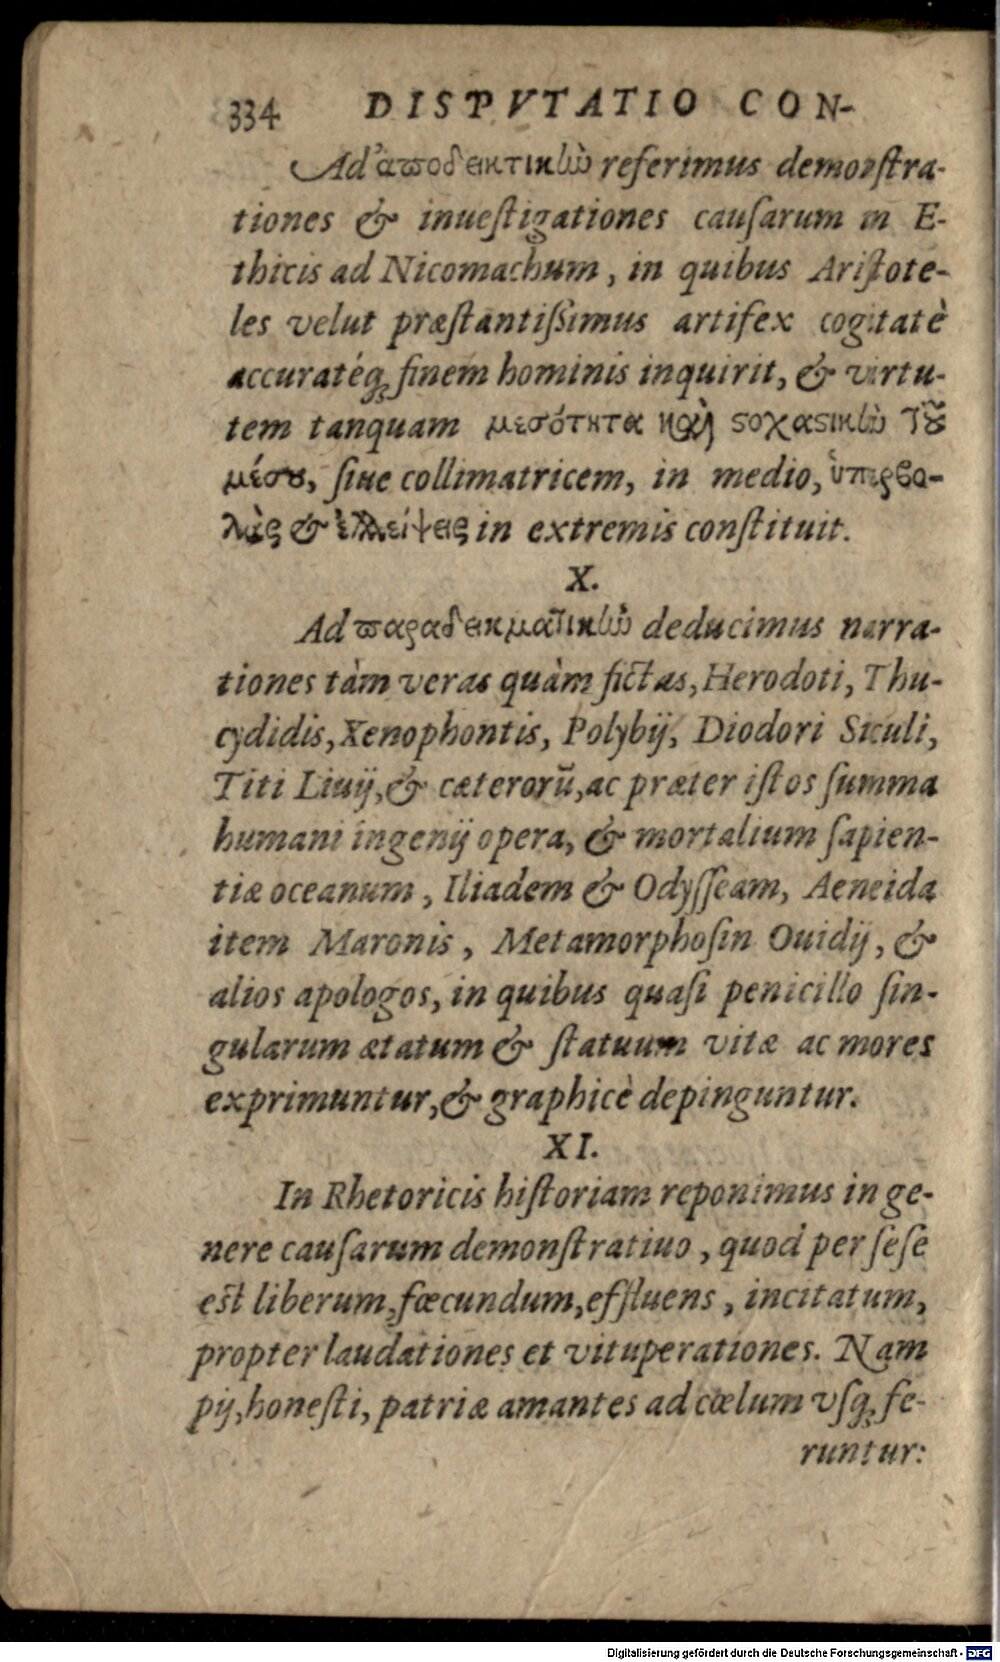 334 DISPVTATIO CON-
Ad ἀποδεικτικὼ referimus demonſtra-
tiones & inueſtigationes cauſarum in E-
thicis ad Nicomachum, in quibus Ariſtote-
les velut præſtantiſſimus artifex cogitatè
accuratéq; finem hominis inquirit, & virtu-
tem tanquam μεσότητα καὶ ϛοχαϛικὼ τῦ
μέσȣ, ſiue collimatricem, in medio, ὑπερβο-
λὰς & ἐλλείψεις in extremis conſtituit.
X.
Ad παραδεικματικὼ deducimus narra-
tiones tàm veras quàm fictas, Herodoti, Thu-
cydidis, Xenophontis, Polybij, Diodori Siculi,
Titi Liuij, & cæterorũ, ac præter iſtos ſumma
humani ingenij opera, & mortalium ſapien-
tiæ oceanum, Iliadem & Odyſſeam, Aeneida
item Maronis, Metamorphoſin Ouidij, &
alios apologos, in quibus quaſi penicillo ſin-
gularum ætatum & ſtatuum vitæ ac mores
exprimuntur, & graphicè depinguntur.
XI.
In Rhetoricis hiſtoriam reponimus in ge-
nere cauſarum demonſtratiuo, quod per ſeſe
eſt liberum, fœcundum, effluens, incitatum,
propter laudationes et vituperationes. Nam
pij, honeſti, patriæ amantes ad cœlum vſq; fe-
runtur:
Digitalisierung gefördert durch die Deutsche Forschungsgemeinschaft - DFG